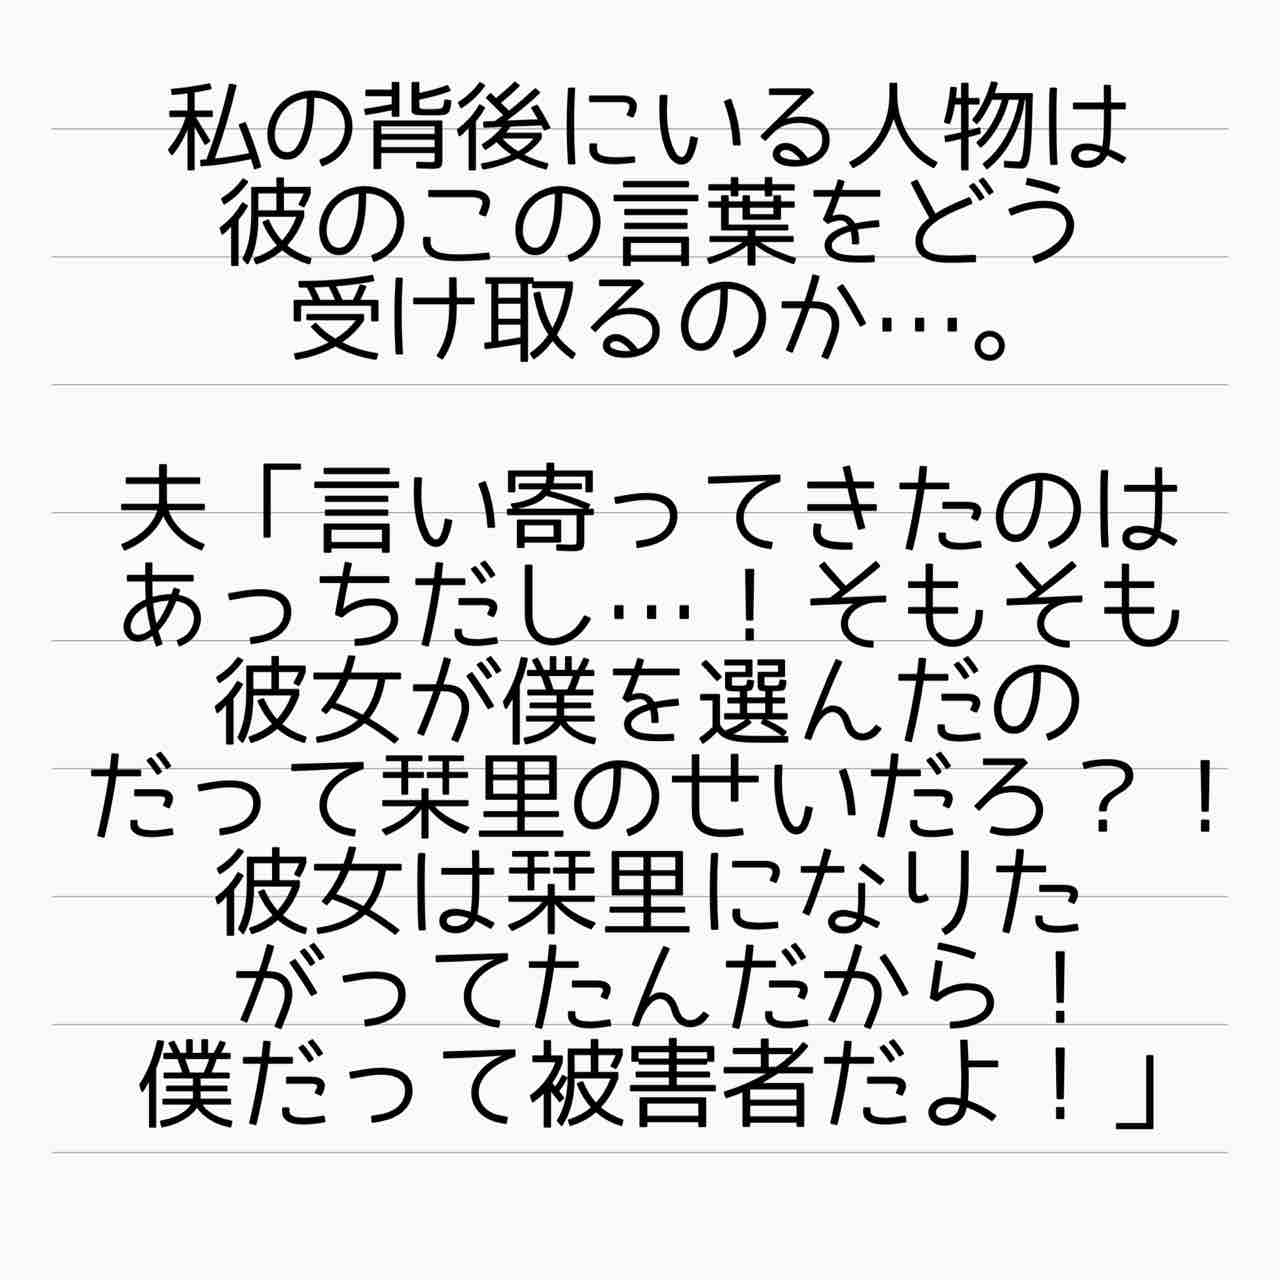 私の背後にいる人物は
彼のこの言葉をどう
受け取るのか…。
夫「言い寄ってきたのは
あっちだし…！そもそも
彼女が僕を選んだの
だって栞里のせいだろ？！
彼女は栞里になりた
がってたんだから！
僕だって被害者だよ！」